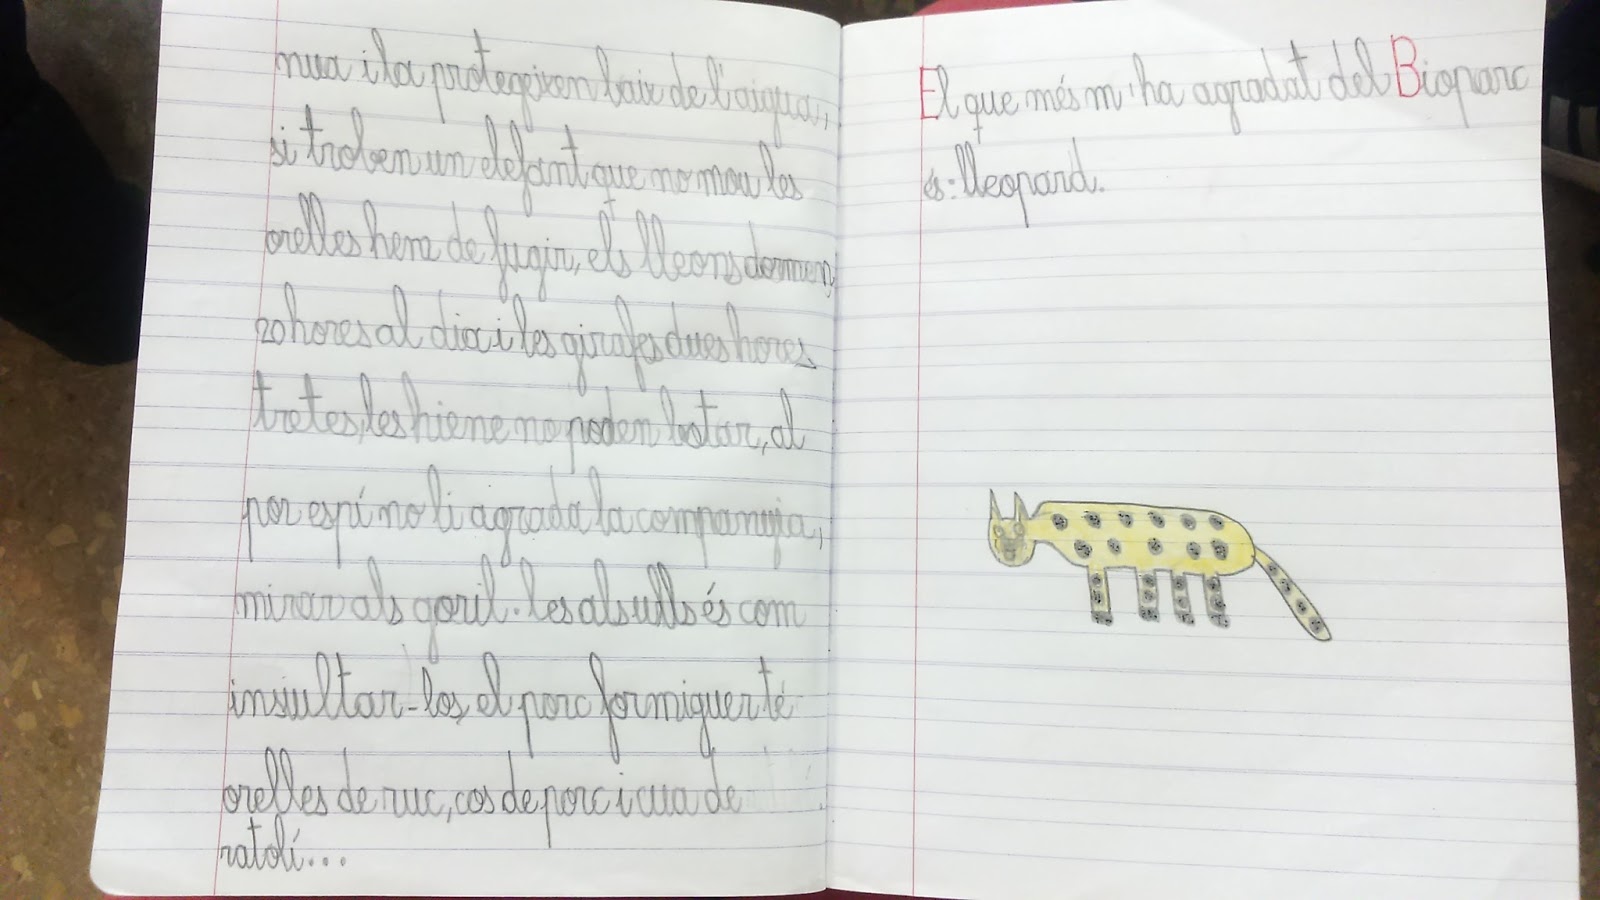 nua i la protegeixen baix de l'aigua,
si troben un elefant que no mou les
orelles hem de fugir, els lleons dormen
20 hores al dia i les girafes dues hores
tretes, les hiene no poden botar, al
por espí no li agrada la companyia,
mirar als goril·les als ulls és com
insultar-los, el porc formiguer té
orelles de ruc, cos de porc i cua de
ratolí...
El que més m'ha agradat del Bioparc
és: lleopard.